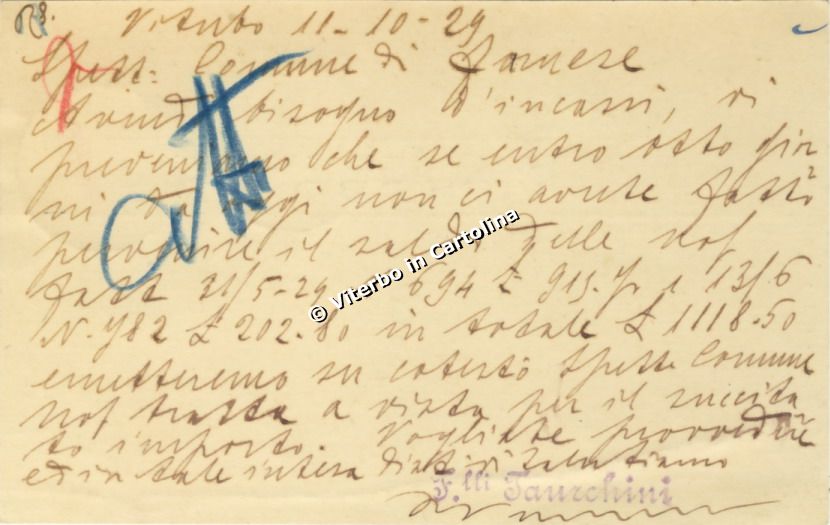 Viterbo 11-10-29
Spett: Comune di Farnese
Avendo bisogno d'incassi, vi
preveniamo che se entro otto gior
ni da oggi non ci avrete fatto
pervenire il saldo delle nos/
fatt 31/5-29 694 £ 915.70 e 13/6
N. 782 £ 202.80 in totale £ 1118.50
emetteremo su cotesto Spett Comune
nos/ tratta a vista per il succita
to importo. Vogliate provvedere
ed in tale intesa disti vi salutiamo
F.lli Taurchini
© Viterbo in Cartolina